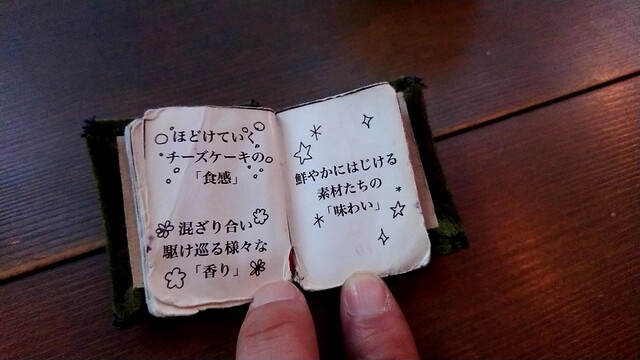 ほどけていく
チーズケーキの
「食感」
混ざり合い
駆け巡る様々な
「香り」
鮮やかにはじける
素材たちの
「味わい」